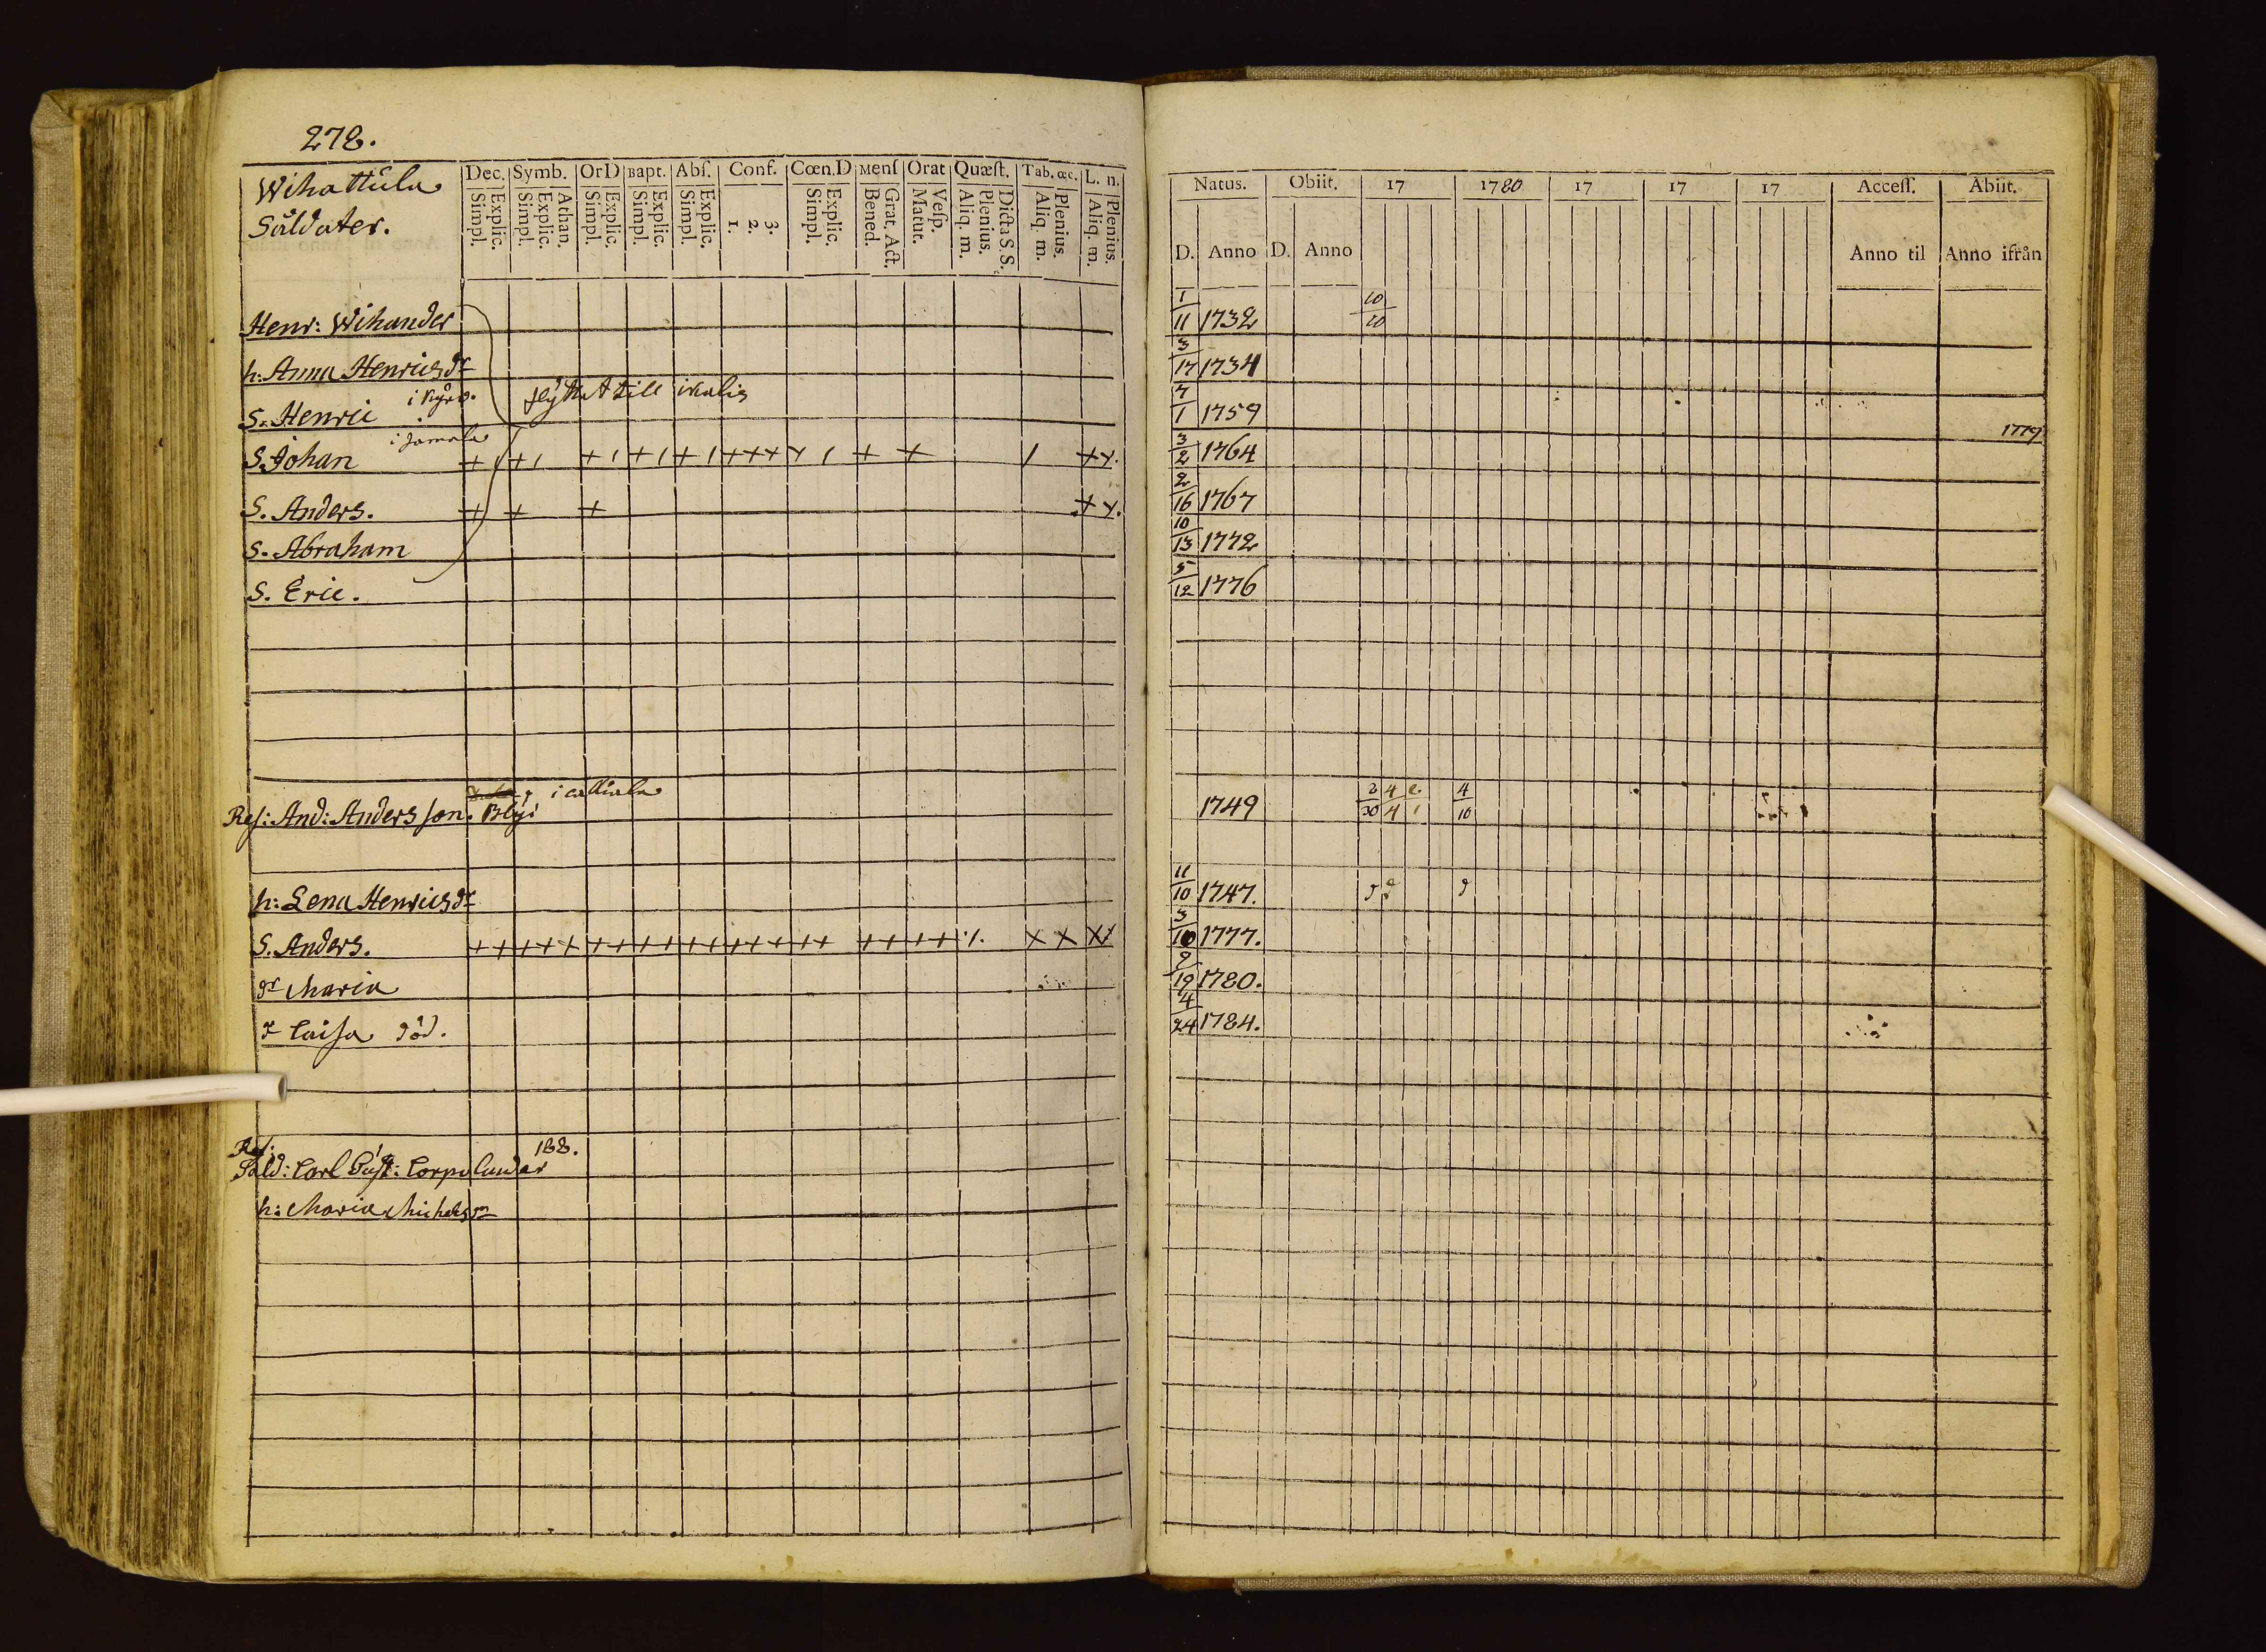 278.
Wihattula
Såldater.
Dec. Symb. OrD Bapt. Abſ. Conf. Cœn.D Menſ Orat Quæſt. Tab. œc. L. n.
Explic. Simpl. Athan. Explic. Simpl. Explic. Simpl. Explic. Simpl. Explic. Simpl. 3. 2. 1. Explic. Simpl. Grat. Act. Bened. Veſp. Matut. Dicta S. S. Plenius. Aliq. m. Plenius. Aliq. m. Plenius. Aliq. m.
Henr: Wihander
h: Anna Henricsdr
S. Henric i Kyro. flyttat till ikalis
S. Johan i Jamala + 1 + 1 + 1 + 1 + 1 + + + + 1 + + 1 + +.
S. Anders. + + + + +.
S. Abraham
S. Eric.
i
Reſ: And: Andersſon. Bly
h: Lena Henricsdr
S. Anders. + + + + + + + + + + + + + + + + + + + + + ·/. + + + +
dr Maria
dr Caisa död.
188.
Sald: Carl Guſt: Corpolander
h: Maria Michelsdr
Natus. Obiit. 17 1780 17 17 17 Acceſſ. Abiit.
D. Anno D. Anno Anno til Anno ifrån
1/11 1732 10/10
3/17 1734
7/1 1759
1779
3/2 1764
2/16 1767
10/13 1772
5/12 1776
1749 2/30 4/4 2/1 4/10
11/10 1747. d d d
3/10 1777.
9/19 1780.
4/24 1784.